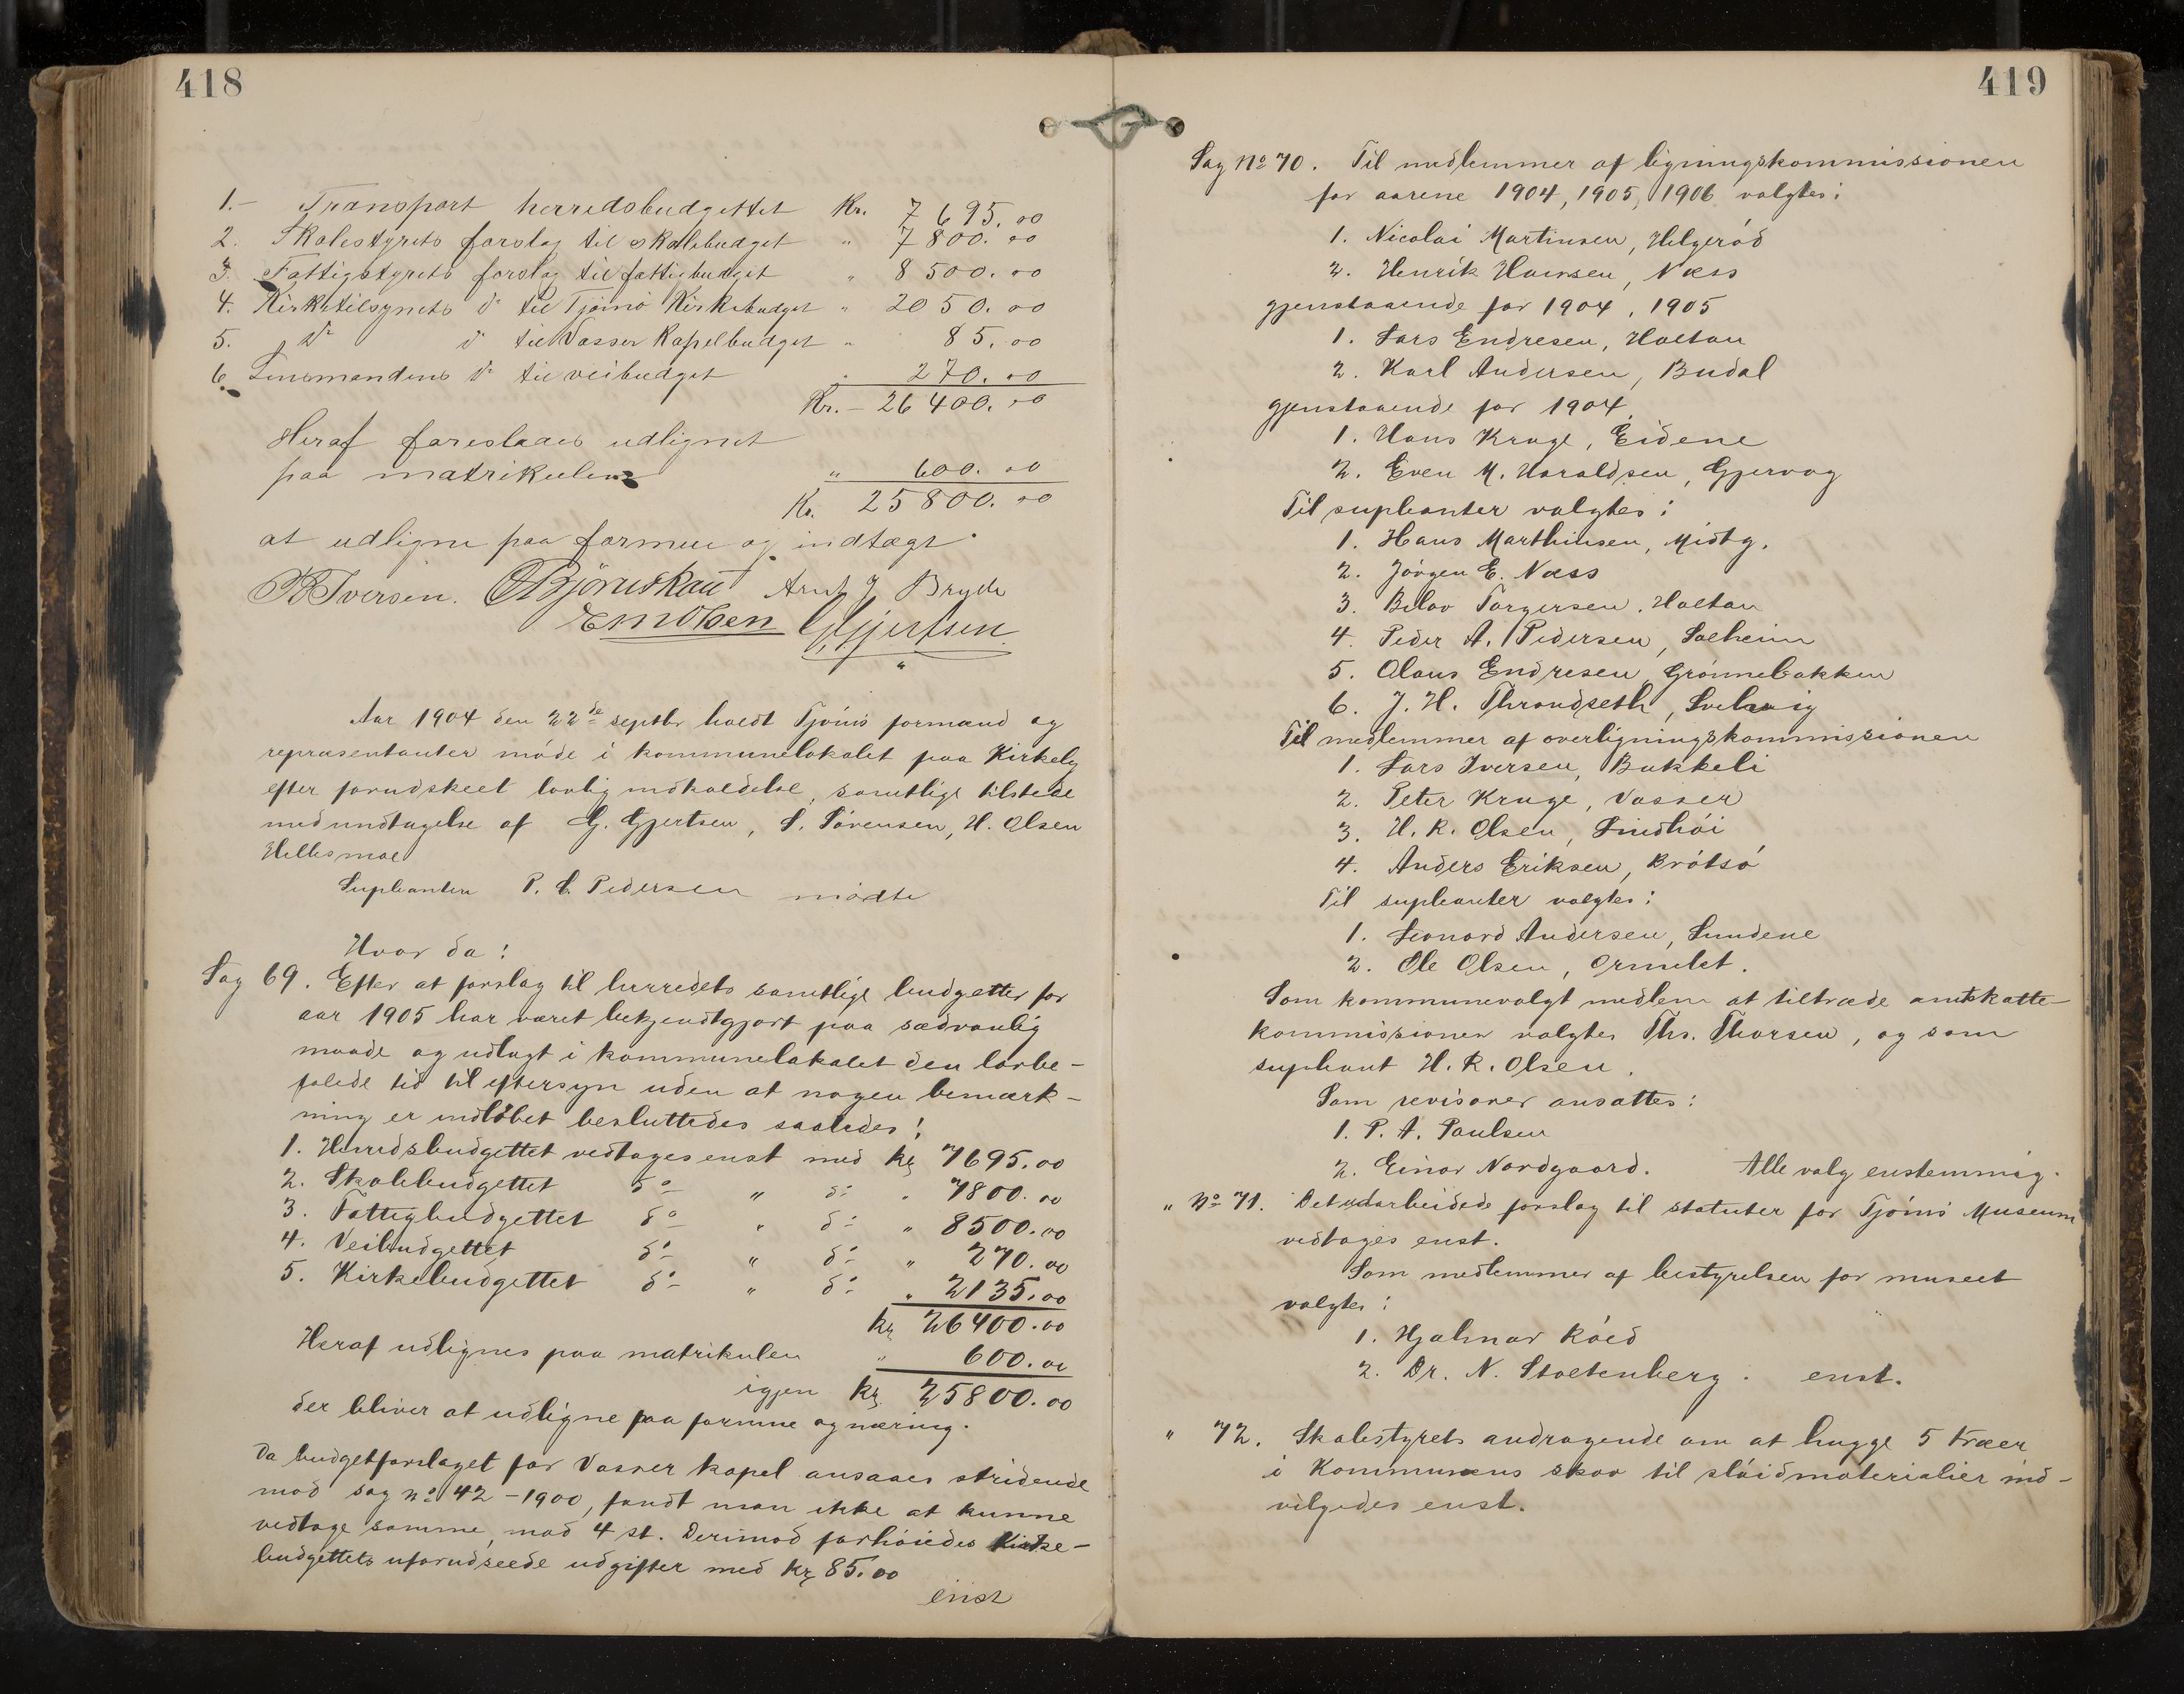 418
1.- Transport herredsbudgettet Kr. 7695.00
2. Skolestyrets forslag til skolebudget " 7800.00
3. Fattigstyrets forslag til fattigbudget " 8500.00
4. Kirketilsynets do til Tjømø Kirkebudget " 2050.00
5. do do til Vasser Kapelbudget " 85.00
6 Lensmandens do til veibudget " 270.00
Kr.- 26400.00
Heraf foreslaaes udlignet
paa matrikulen " 600.00
Kr. 25800.00
at udligne paa formue og indtægt.
Iversen. Bjørnskau Arnt J Bryde
EmOlsen G. Gjertsen
Aar 1904 den 22de septbr holdt Tjømø formænd og
repræsentanter møde i kommunelokalet paa Kirkely
efter forudskeet lovlig indkaldelse, samtlige tilstede
med undtagelse af G. Gjertsen, S. Sørensen, H. Olsen
Hellesmoe
Suplanten P. C. Pedersen mødte
Hvor da:
Sag 69. Efter at forslag til herredets samtlige budgetter for
aar 1905 har været bekjendtgjort paa sædvanlig
maade og udlagt i kommunelokalet den lovbe-
falede tid til eftersyn uden at nogen bemærk-
ning er indløbet besluttedes saaledes:
1. Herredsbudgettet vedtages enst med kr 7695.00
2. Skolebudgettet do " do " 7800.00
3. Fattigbudgettet do " do " 8500.00
4. Veibudgettet do " do " 270.00
5. Kirkebudgettet do " do " 2135.00
kr 26400.00
Heraf udlignes paa matrikulen " 600.00
igjen kr 25800.00
der bliver at udligne paa formue og næring.
Da budgetforslaget for Vasser kapel ansaaes stridende
mod sag No 42-1900, fandt man ikke at kunne
vedtage samme, mod 4 st. Derimod forhøiedes Kirke-
budgettets uforudseede udgifter med kr 85.00
enst
419
Sag No 70. Til medlemmer af ligningskommissionen
for aarene 1904, 1905, 1906 valgtes:
1. Nicolai Martinsen, Helgerød
2. Henrik Hansen, Næss
gjenstaaende for 1904, 1905
1. Lars Endresen, Holtan
2. Karl Andersen, Budal
gjenstaaende for 1904
1. Hans Kruge, Eidene
2. Even M. Haraldsen, Gjervaag
Til suplanter valgtes:
1. Hans Marthinsen, Midtg.
2. Jørgen E. Næss
3. Torgersen, Holtan
4. Peder A. Pedersen, Solheim
5. Olaus Endresen, Grønnebakken
6. J. H. Throndseth, Svelvig
Til medlemmer af overligningskommissionen
1. Lars Iversen, Bakkeli
2. Peter Kruge, Vasser
3. H. R. Olsen, Lindhøi
4. Anders Eriksen, Brøtsø
Til suplanter valgtes:
1. Leonard Andersen, Sundene
2. Ole Olsen, Ormelet.
Som kommunevalgt medlem at tiltræde amtskatte-
kommissionen valgtes Ths. Thorsen, og som
suplant H. R. Olsen.
Som revisorer ansattes:
1. P. A. Paulsen
2. Einar Nordgaard. Alle valg enstemmig.
" No 71. Det udarbeidede forslag til statuter for Tjømø Museum
vedtages enst.
Som medlemmer af bestyrelsen for museet
valgtes:
1. Hjalmar Røed
2. Dr. N. Stoltenberg. enst.
" 72. Skolestyrets andragende om at hugge 5 træer
i Kommunens skov til sløidmaterialier ind-
vilgedes enst.